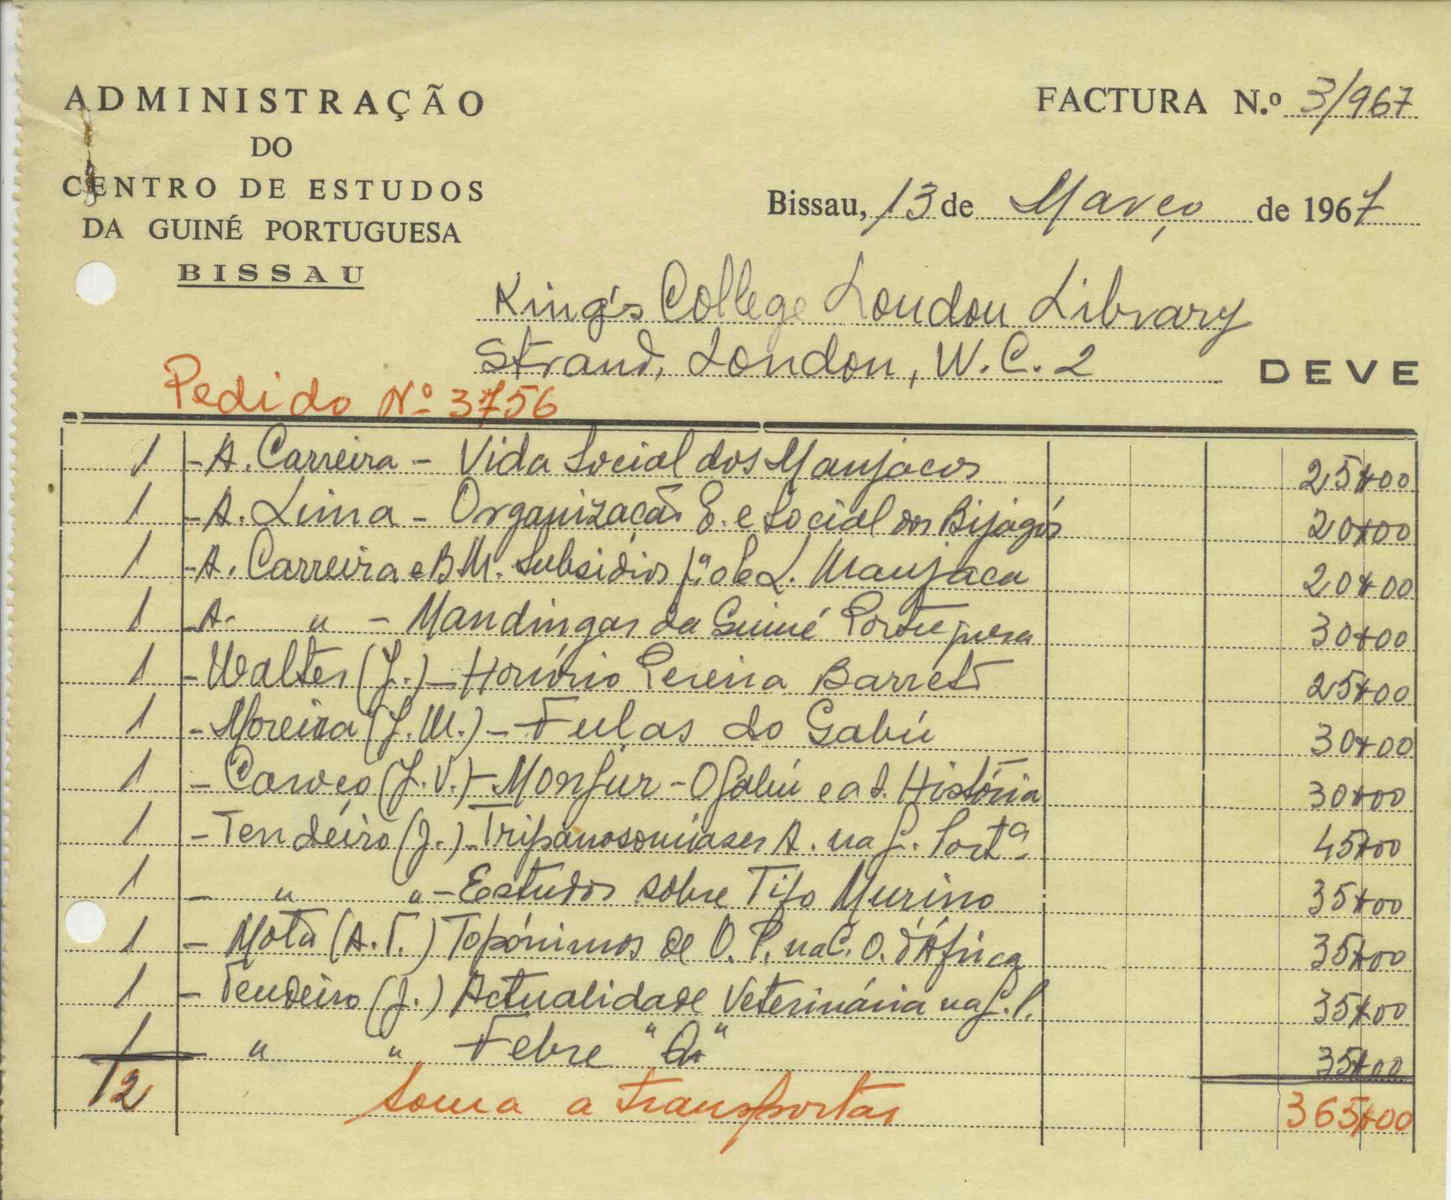 ADMINISTRAÇÃO
DO
CENTRO DE ESTUDOS
DA GUINÉ PORTUGUESA
BISSAU
FACTURA N.º 3/967
Bissau, 13 de Março de 1967
King's College London Library
Strand, London, W.C.2
DEVE
Pedido Nº 3756
1 - A. Carreira - Vida Social dos Manjacos 25$00
1 - A. Lima - Organização E. e Social dos Bijagós 20$00
1 - A. Carreira e B M. Subsídios p.ª o e L. Manjaca 20$00
1 - A. " - Mandingas da Guiné Portuguesa 30$00
1 - Walter (J.) - Honório Pereira Barreto 25$00
1 - Moreira (J. M.) - Fulas do Gabú 30$00
1 - Caroço (J. V.) - Monjur - O Gabú e a S. História 30$00
1 - Tendeiro (J.) - Tripanosomiases A. na G. Portª 45$00
1 - " " - Estudos sobre Tifo Murino 35$00
1 - Mota (A. T.) Topónimos de O. P. na C. O. d'África 35$00
1 - Tendeiro (J.) Actualidade Veterinária na G. P. 35$00
1 " " Febre "Q" 35$00
12 Soma a transportar 365$00